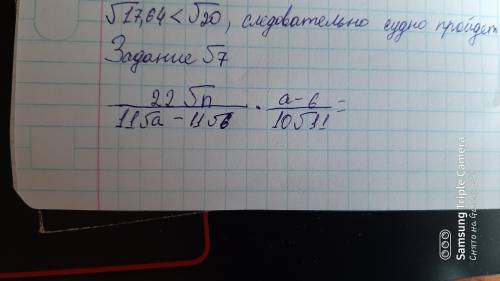 √17,64 < √20, следовательно судно пройдет
Задание √7
22√n / 11√a − 11√б · a − б / 10√11 =
Samsung Triple Camera
Снято на Galaxy